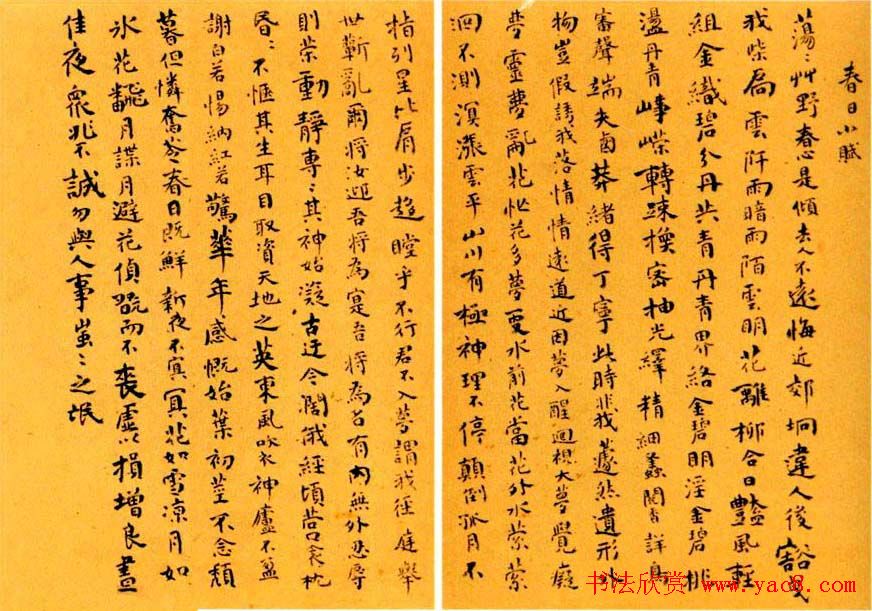 春日小賦
蕩〻艸野春心是傾去人不遠悔近郊坰違人後豁
我柴扃雲阡雨暗雨陌雲明花離柳合日豔風輕
組金織碧分丹共青丹青界絡金碧明淫金碧桃
盪丹青崢嶸轉疎換密抽光繹精細蠡閱香詳鳥
審聲端夫鹵莽緒得丁寧此時非我蘧然遺形外
物豈假誘我落情情遠道近因夢入醒迴視大夢覺癡
夢靈夢亂花忙花多夢水前花當花外水縈縈
洄不測溟漲雲平山川有極神理不停顛倒孤月不
指列星比肩步趨瞠乎不行君不入夢謂我徑庭舉
世蘄亂爾將汝迎吾將為寔吾將為名有內無外忍辱
則榮動靜專〻其神始凝古迂今闊俄經頃營衾枕
昏〻不愜其生耳目取資天地之英東風吹衣神廬不盈
謝白若惕納紅若驚華年感慨始葉初莖不念頹
暮但憐奮苓春日既鮮新夜不冥花如雪涼月如
氷花飜月諜月避花偵翫而不喪虛以損增良晝
佳夜眾兆不誠勿與人事蚩〻之氓
书法欣赏 www.yac8.com